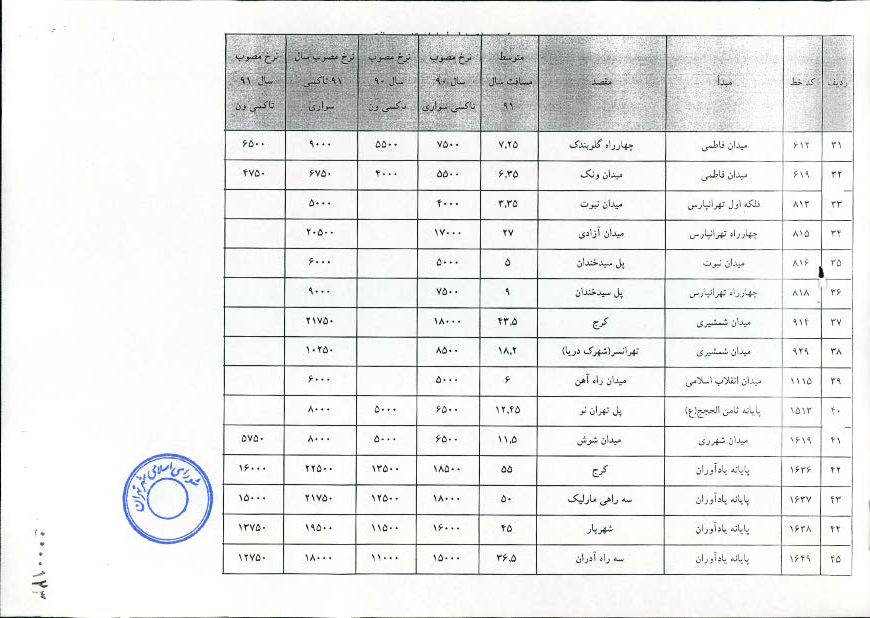 ردیف | کد خط | مبدأ | مقصد | متوسط مسافت سال ۹۱ | نرخ مصوب سال ۹۰ تاکسی سواری | نرخ مصوب سال ۹۰ تاکسی ون | نرخ مصوب سال ۹۱ تاکسی سواری | نرخ مصوب سال ۹۱ تاکسی ون
۳۱ | ۶۱۲ | میدان فاطمی | چهارراه گلوبندک | ۷,۲۵ | ۷۵۰۰ | ۵۵۰۰ | ۹۰۰۰ | ۶۵۰۰
۳۲ | ۶۱۹ | میدان فاطمی | میدان ونک | ۶,۳۵ | ۵۵۰۰ | ۴۰۰۰ | ۶۷۵۰ | ۴۷۵۰
۳۳ | ۸۱۳ | فلکه اول تهرانپارس | میدان نبوت | ۳,۳۵ | ۴۰۰۰ | ۵۰۰۰
۳۴ | ۸۱۵ | چهارراه تهرانپارس | میدان آزادی | ۲۷ | ۱۷۰۰۰ | ۲۰۵۰۰
۳۵ | ۸۱۶ | میدان نبوت | پل سیدخندان | ۵ | ۵۰۰۰ | ۶۰۰۰
۳۶ | ۸۱۸ | چهارراه تهرانپارس | پل سیدخندان | ۹ | ۷۵۰۰ | ۹۰۰۰
۳۷ | ۹۱۴ | میدان شمشیری | کرج | ۴۳,۵ | ۱۸۰۰۰ | ۲۱۷۵۰
۳۸ | ۹۲۹ | میدان شمشیری | تهرانسر(شهرک دریا) | ۱۸,۲ | ۸۵۰۰ | ۱۰۲۵۰
۳۹ | ۱۱۱۵ | میدان انقلاب اسلامی | میدان راه آهن | ۶ | ۵۰۰۰ | ۶۰۰۰
۴۰ | ۱۵۱۳ | پایانه ثامن الحجج(ع) | پل تهران نو | ۱۲,۴۵ | ۶۵۰۰ | ۵۰۰۰ | ۸۰۰۰
۴۱ | ۱۶۱۹ | میدان شهرری | میدان شوش | ۱۱,۵ | ۶۵۰۰ | ۵۰۰۰ | ۸۰۰۰ | ۵۷۵۰
۴۲ | ۱۶۳۶ | پایانه یادآوران | کرج | ۵۵ | ۱۸۵۰۰ | ۱۳۵۰۰ | ۲۲۵۰۰ | ۱۶۰۰۰
۴۳ | ۱۶۳۷ | پایانه یادآوران | سه راهی مارلیک | ۵۰ | ۱۸۰۰۰ | ۱۲۵۰۰ | ۲۱۷۵۰ | ۱۵۰۰۰
۴۴ | ۱۶۳۸ | پایانه یادآوران | شهریار | ۴۵ | ۱۶۰۰۰ | ۱۱۵۰۰ | ۱۹۵۰۰ | ۱۳۷۵۰
۴۵ | ۱۶۴۹ | پایانه یادآوران | سه راه آدران | ۳۶,۵ | ۱۵۰۰۰ | ۱۱۰۰۰ | ۱۸۰۰۰ | ۱۲۷۵۰
شورای اسلامی شهر تهران